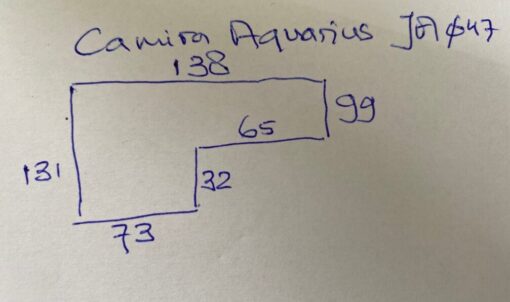 Camira Aquarius JA047
138
99
65
131
32
73